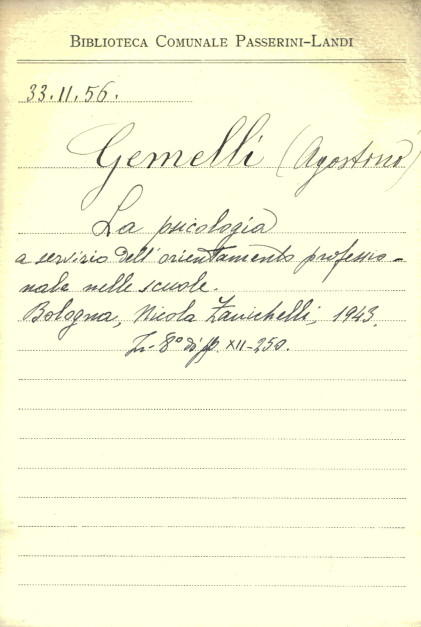 BIBLIOTECA COMUNALE PASSERINI-LANDI
33.11.56.
Gemelli (Agostino)
La psicologia
a servizio dell'orientamento professio-
nale nelle scuole.
Bologna, Nicola Zanichelli, 1943.
In-8° di pp. XII-250.